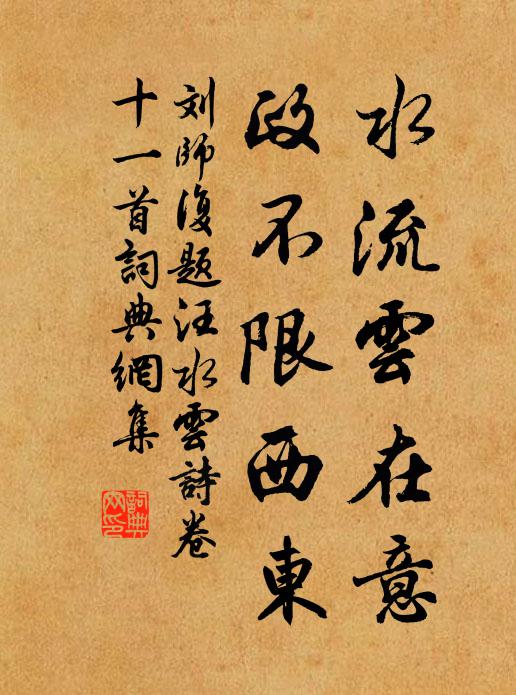 水流雲在意
政不限西東
刘師復题汪水雲詩卷
十一首詞典網集
詞典网印